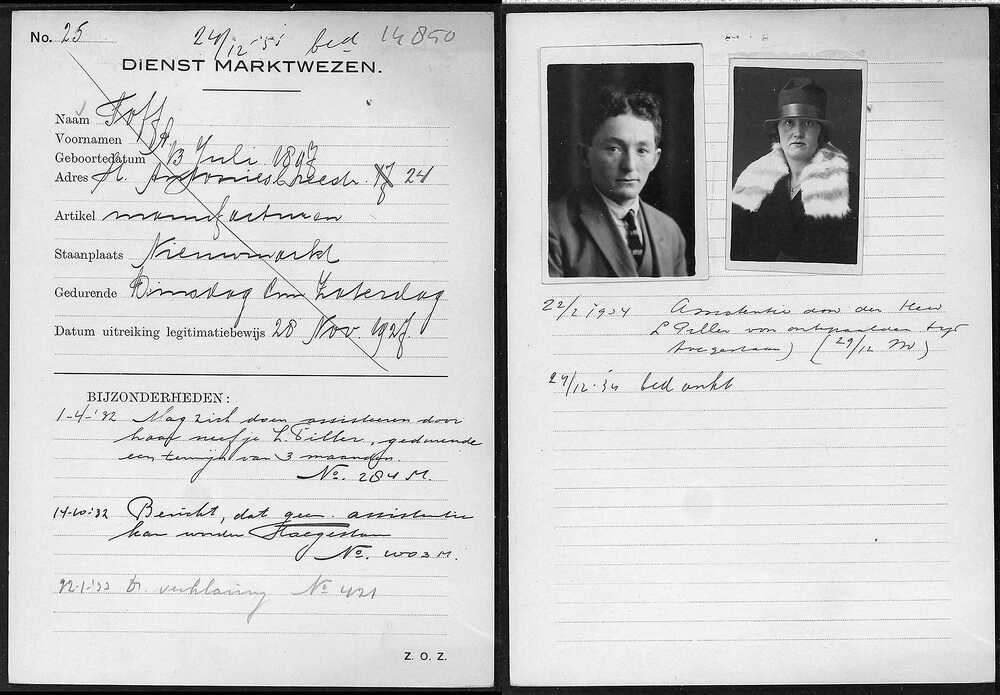 No. 25
24/12 '35 bed 14850
DIENST MARKTWEZEN.
Naam Toff
Voornamen A
Geboortedatum 13 Juli 1897
Adres St. Antoniesbreestr. 24
Artikel manufacturen
Staanplaats Nieuwmarkt
Gedurende Dinsdag Zaterdag
Datum uitreiking legitimatiebewijs 28 Nov. 1927.
BIJZONDERHEDEN:
1-4-'32 Mag zich doen assisteeren door
haar neefje L. Piller, gedurende
een termijn van 3 maanden.
No. 284 M.
14-10-'32 Bericht, dat geen assistentie
kan worden toegestaan
No. 1003 M.
verklaring No 421
Z. O. Z.
22/2 1934 Assistentie door den Heer
L Piller van onbepaalden tijd
toegestaan) (29/12 M.)
24/12-'34 bedankt